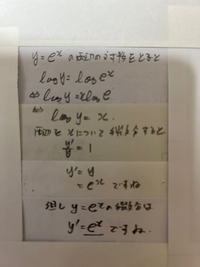 y = e^x の両辺の対数をとると
log y = log e^x
⇔ log y = x log e
⇔ log y = x.
両辺を x について微分すると
y'/y = 1
y' = y
= e^x ですね
但し y = e^x の微分は
y' = e^x ですね.